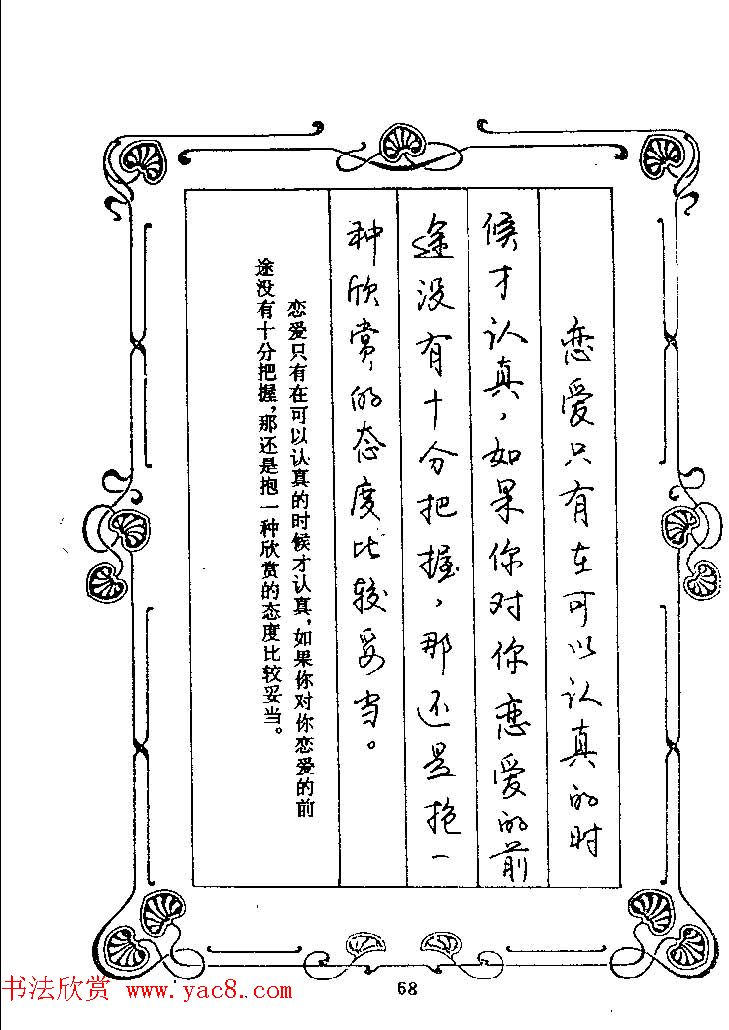 恋爱只有在可以认真的时
候才认真，如果你对你恋爱的前
途没有十分把握，那还是抱一
种欣赏的态度比较妥当。
恋爱只有在可以认真的时候才认真，如果你对你恋爱的前
途没有十分把握，那还是抱一种欣赏的态度比较妥当。
68
书法欣赏 www.yac8.com